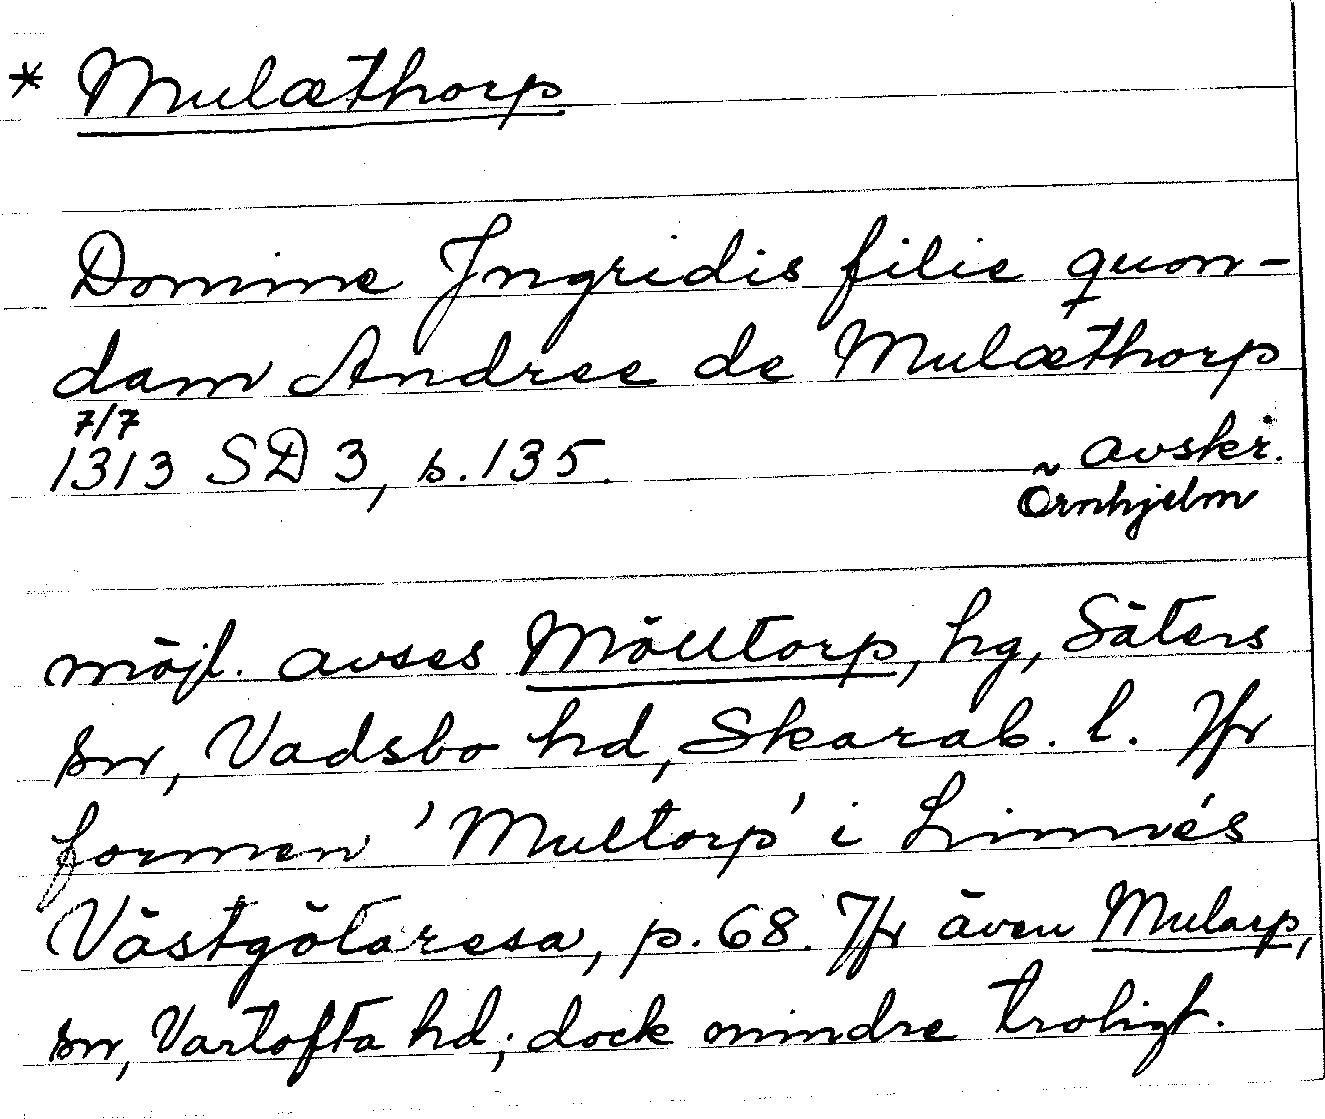 * Mulæthorp
Domine Jngridis filie quon-
dam Andree de Mulæthorp
7/7
1313 SD 3, s. 135. avskr.
Örnhjelm
möjl. avses Mölltorp, hg, Säters
sn, Vadsbo hd, Skarab. l. Jfr
formen 'Multorp' i Linnés
Västgötaresa, p. 68. Jfr även Mularp,
sn, Vartofta hd; dock mindre troligt.